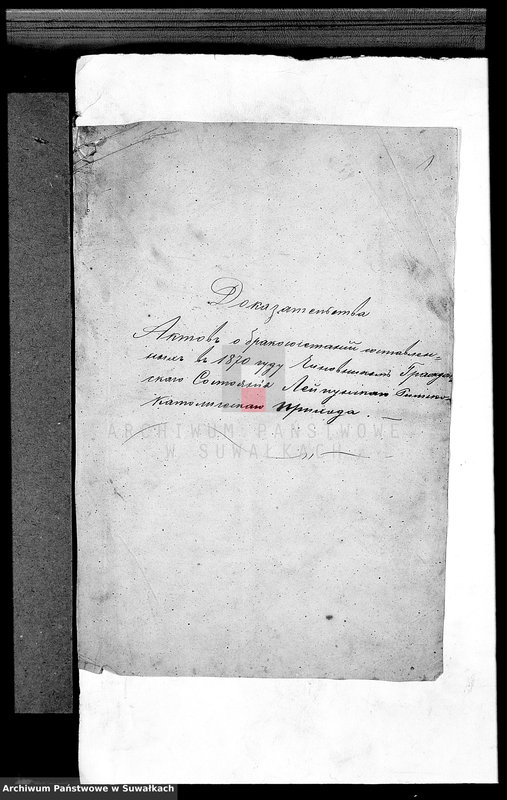 1
Доказательства
Актовъ о бракосочетаній составлен-
ныхъ въ 1870 году Чиновникомъ Граждан-
скаго Состоянія Лейпунскаго Римско-
католическаго Прихода.
ARCHIWUM PAŃSTWOWE
W SUWAŁKACH
Archiwum Państwowe w Suwałkach